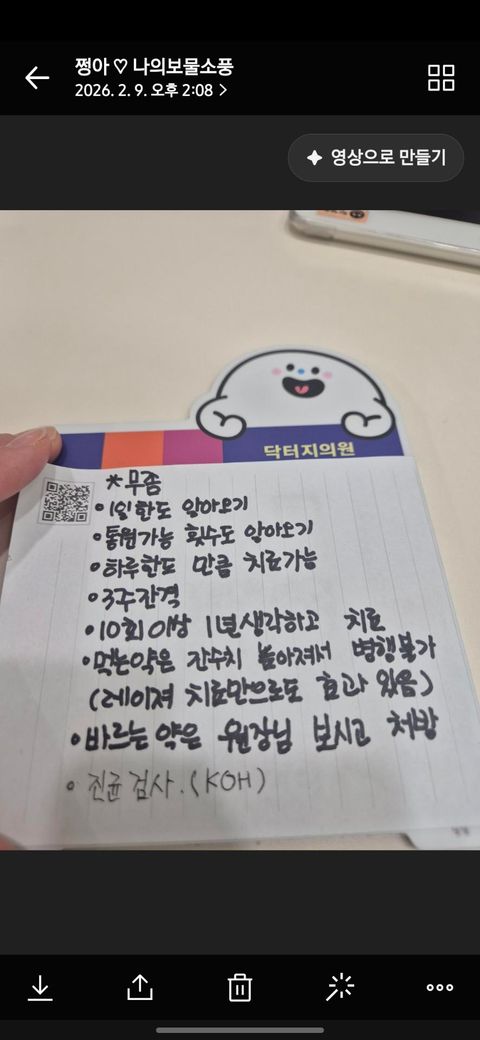 쩡아 ♡ 나의보물소풍
2026. 2. 9. 오후 2:08 >
영상으로 만들기
닥터지의원
*무좀
•1일한도 알아오기
•통원가능 횟수도 알아오기
•하루한도 만큼 치료가능
•3주간격
•10회이상 1년생각하고 치료
•먹는약은 간수치 높아져서 병행불가
(레이져 치료만으로도 효과 있음)
•바르는 약은 원장님 보시고 처방
•진균검사.(KOH)